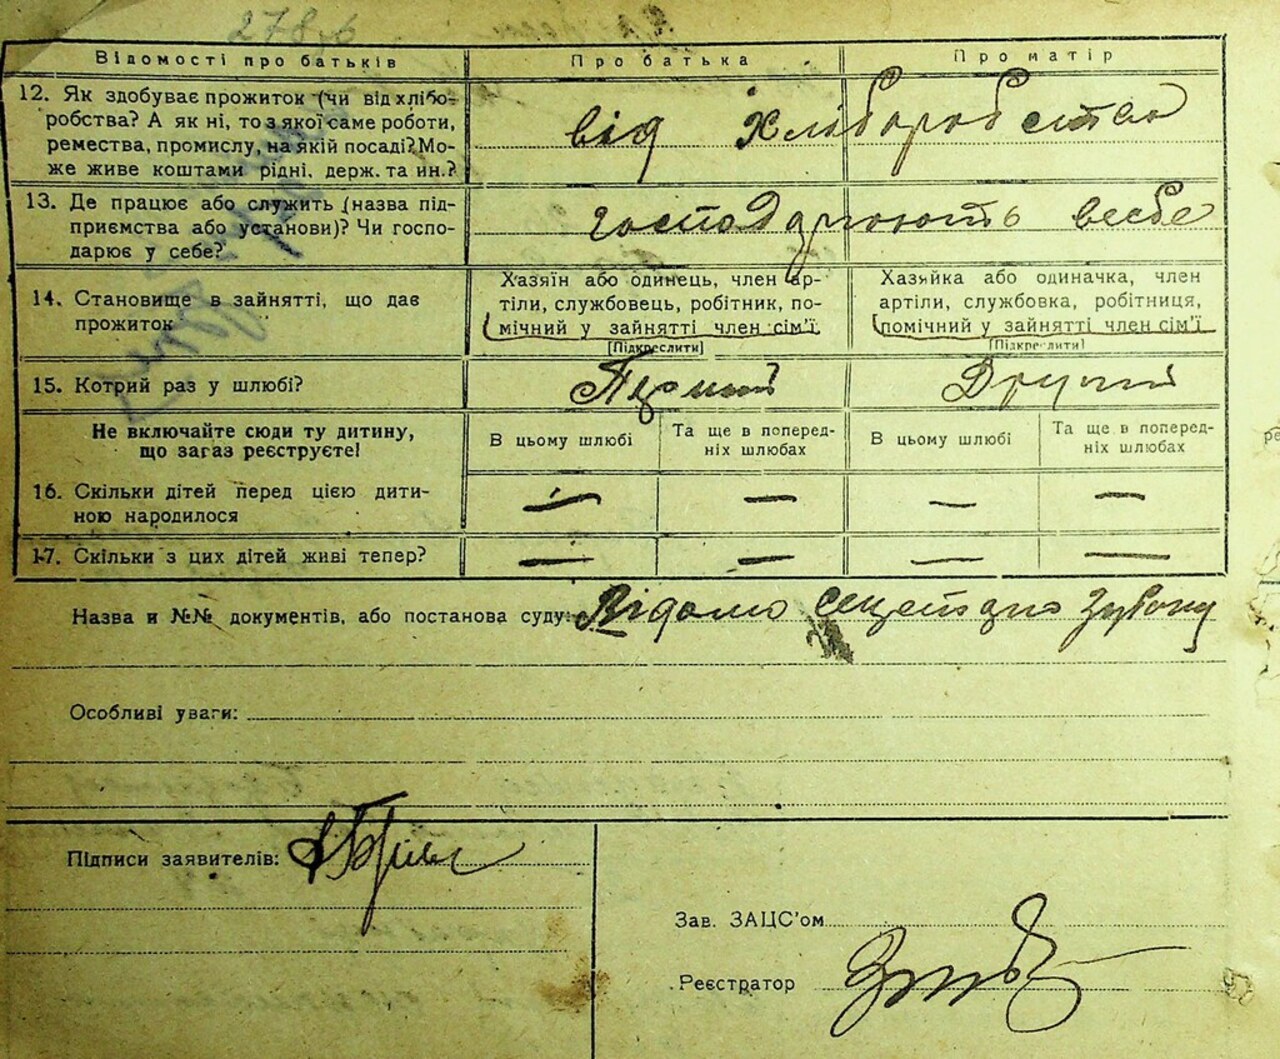 278
Відомості про батьків Про батька Про матір
12. Як здобуває прожиток (чи від хлібо-
робства? А як ні, то з якої саме роботи,
ремества, промислу, на якій посаді? Мо-
же живе коштами рідні, держ. та ин.?
від хліборобства
13. Де працює або служить (назва під-
приємства або установи)? Чи госпо-
дарює у себе?
господарюють всебе
14. Становище в зайнятті, що дає
прожиток
Хазяїн або одинець, член ар-
тіли, службовець, робітник, по-
мічний у зайнятті член сім'ї
[Підкреслити]
Хазяйка або одиначка, член
артіли, службовка, робітниця,
помічний у зайнятті член сім'ї
[Підкреслити]
15. Котрий раз у шлюбі? Первий Другий
Не включайте сюди ту дитину,
що загаз реєструєте!
В цьому шлюбі
Та ще в поперед-
ніх шлюбах
В цьому шлюбі
Та ще в поперед-
ніх шлюбах
16. Скільки дітей перед цією дити-
ною народилося
— — — —
17. Скільки з цих дітей живі тепер? — — — —
Назва и №№ документів, або постанова суду: Відомо
Особливі уваги:
Підписи заявителів:
Зав. ЗАЦС'ом
Реєстратор